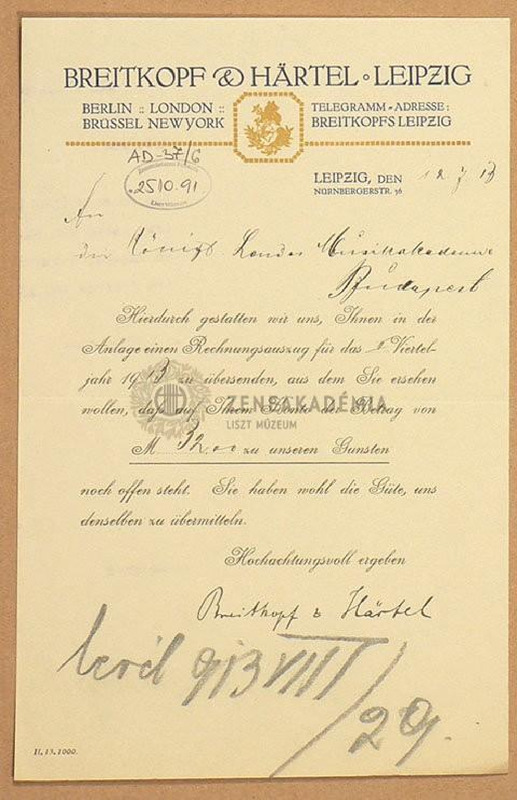 BREITKOPF & HÄRTEL · LEIPZIG
BERLIN :: LONDON ::
BRÜSSEL NEW YORK
TELEGRAMM-ADRESSE:
BREITKOPFS LEIPZIG
AD-37/6
25/10.91
LEIPZIG, DEN
NÜRNBERGERSTR. 36
An
die Königl Landes Musikakademie
Budapest
Hierdurch gestatten wir uns, Ihnen in der
Anlage einen Rechnungsauszug für das Viertel-
jahr 1913 zu übersenden, aus dem Sie ersehen
wollen, daß auf Ihrem Konto der Betrag von
M 32.00 zu unseren Gunsten
noch offen steht. Sie haben wohl die Güte, uns
denselben zu übermitteln.
Hochachtungsvoll ergeben
Breitkopf & Härtel
913 VIII/29.
II. 13. 1000.
ZENEAKADÉMIA
LISZT MÚZEUM